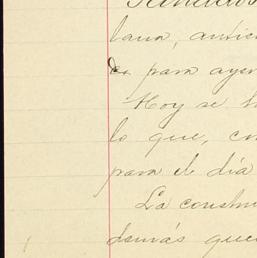 lana, antici
da para ayer
Hoy se h
lo que, co
para el día
La constru
demás que